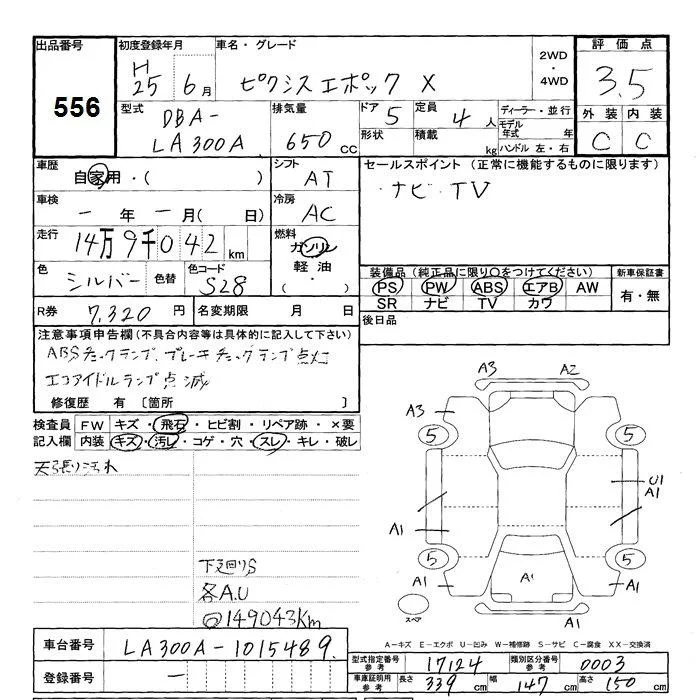 出品番号
556
初度登録年月
H
25 6月
車名・グレード
ピクシスエポック X
2WD
・
4WD
評価点
3.5
外装 内装
C C
型式
DBA-
LA300A
排気量
650 CC
ドア 5
形状
定員 4 人
積載 kg
ディーラー・並行
モデル年式 年
ハンドル 左・右
車歴
自家用・( )
シフト
AT
セールスポイント(正常に機能するものに限ります)
・ナビ・TV
車検
― 年 ― 月( 日)
冷房
AC
走行
14万9千042 km
燃料
ガソリン
軽油
・
色
シルバー
色替
色コード
S28
装備品(純正品に限り○をつけてください)
PS PW ABS エアB AW
SR ナビ TV カワ
新車保証書
有・無
R券 7,320 円
名変期限 月 日
後日品
注意事項申告欄(不具合内容等は具体的に記入して下さい)
ABSチェックランプ、ブレーキチェックランプ点灯
エコアイドルランプ点滅
修復歴 有〔箇所 〕
検査員 FW キズ・飛石・ヒビ割・リペア跡・×要
記入欄 内装 キズ・汚レ・コゲ・穴・スレ・キレ・破レ
天張り汚れ
下廻りS
各A.U
@149043Km
A3 A2
A3
5 5
U1
A1
A1
5 5
A1 A1 A1
スペア
A1
A-キズ E-エクボ U-凹み W-補修跡 S-サビ C-腐食 XX-交換済
車台番号 LA300A-1015489
登録番号 ―
型式指定番号参考 17124
類別区分番号参考 0003
車庫証明用参考 長さ 339 cm 幅 147 cm 高さ 150 cm